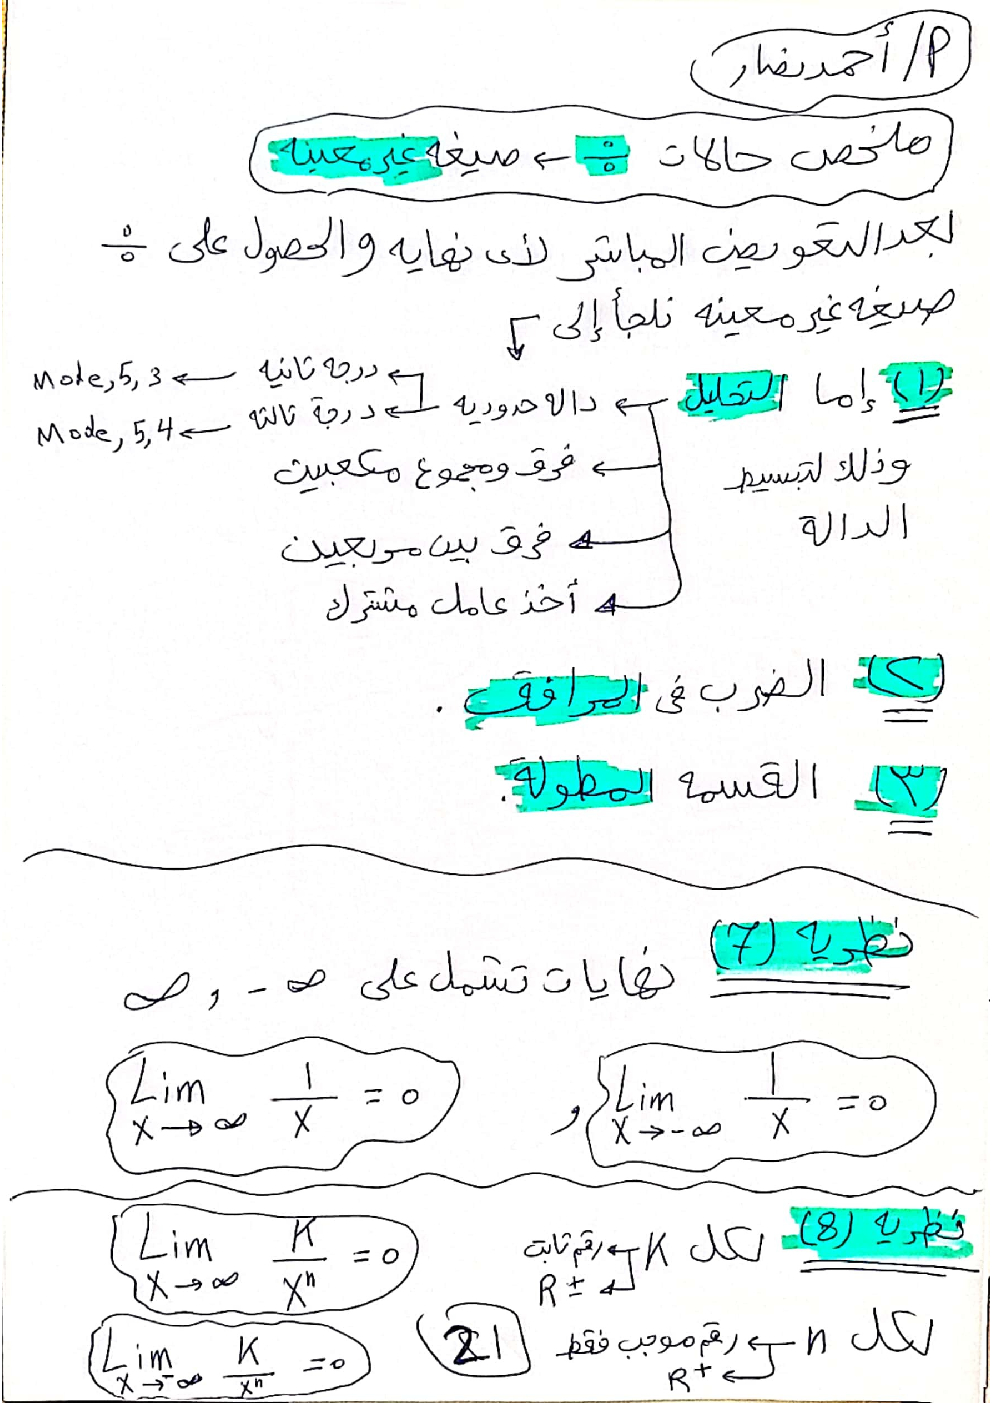 P/ أحمد نصار
ملخص حالات 0/0 ← صيغه غير معينه
بعد التعويض المباشر لأى نهايه والحصول على 0/0
صيغه غير معينه نلجأ إلى
(١) إما التحليل ← دالة حدوديه ← درجه ثانيه ← Mode,5,3
← درجة ثالثه ← Mode,5,4
وذلك لتبسيط ← فرق ومجموع مكعبين
الدالة ← فرق بين مربعين
← أخذ عامل مشترك
(٢) الضرب فى المرافق .
(٣) القسمه المطولة .
نظريه (7) نهايات تشمل على ∞- , ∞
Lim x→-∞ 1/x = 0 , Lim x→∞ 1/x = 0
نظريه (8) لكل K ← رقم ثابت
R ±
Lim x→∞ K/xⁿ = 0
لكل n ← رقم موجب فقط
R+
Lim x→-∞ K/xⁿ = 0
21